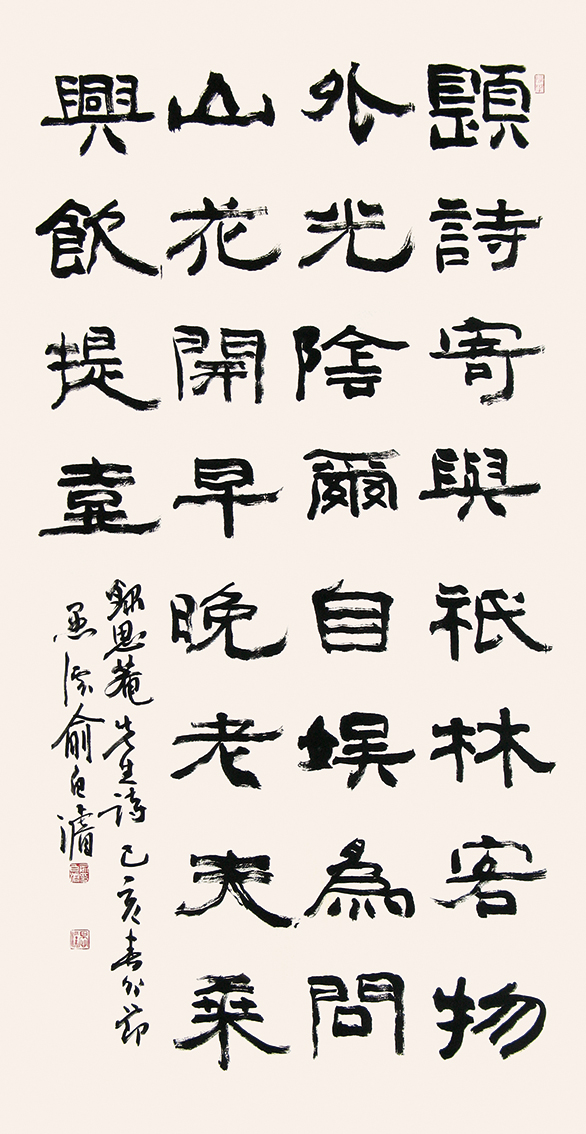 題詩寄與祇林客物
外光陰爾自娛為問
山花開早晚老夫乘
興飲提壺
錄思菴先生詩 己亥春分節
俞